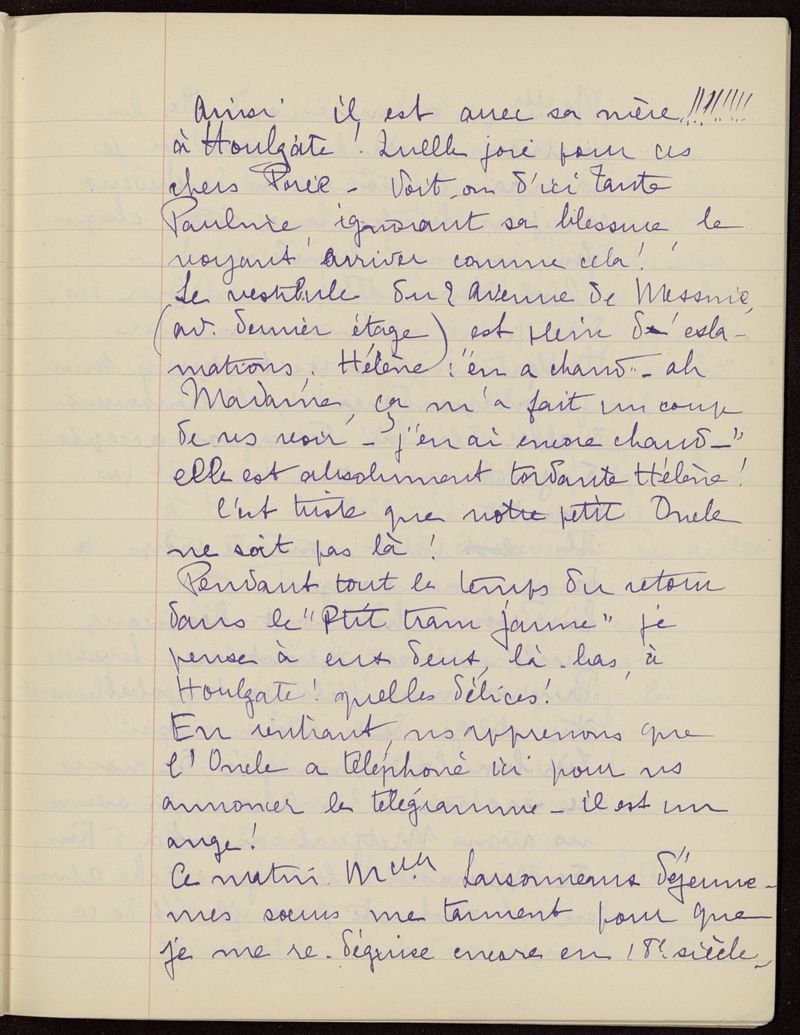 Ainsi il est avec sa mère !!!!!!!!
à Houlgate ! Quelle joie pour ces
chers Porée - Voit-on d'ici Tante
Pauline ignorant sa blessure le
voyant arriver comme cela !
Le vestibule du 2 Avenue de Messine
(av. dernier étage) est plein d'excla-
mations. Hélène : "en a chaud" - ah
Madame, ça m'a fait un coup
de vs revoir - j'en ai encore chaud - "
elle est absolument tordante Hélène !
C'est triste que notre petit Oncle
ne soit pas là !
Pendant tout le temps du retour
dans le "Ptit tram jaune" je
pense à eux deux, là-bas, à
Houlgate ! quelles délices !
En rentrant, ns apprenons que
l'Oncle a téléphoné ici pour ns
annoncer le télégramme - il est un
ange !
Ce matin. Melle Larsonneaux déjeune -
mes soeurs me tannent pour que
je me re-déguise encore en 18e siècle -